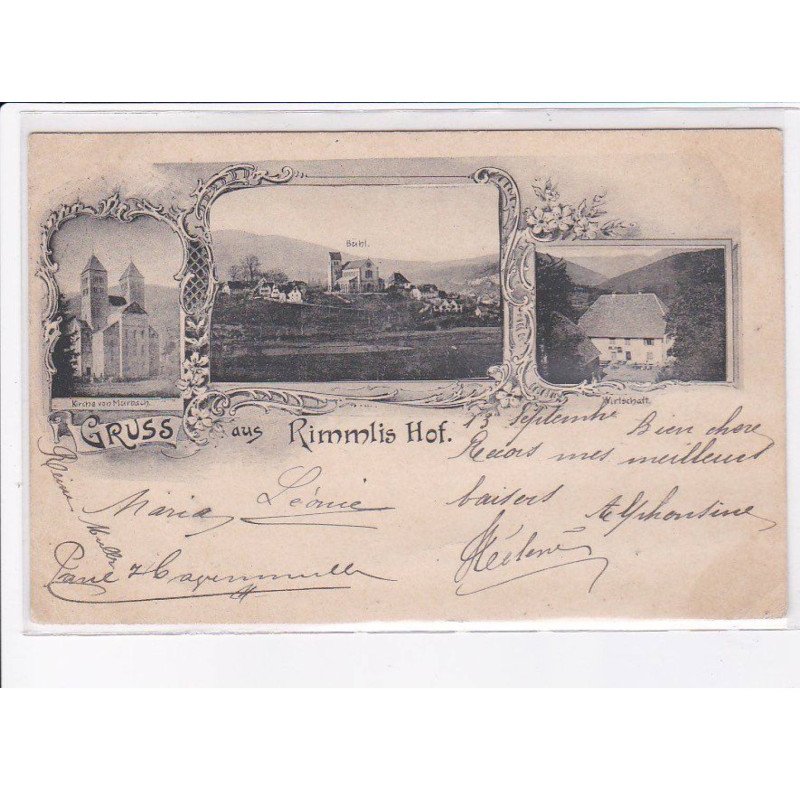 Bühl.
Kirche von Murbach.
Wirtschaft.
GRUSS aus Rimmlis Hof.
13 Septembre
Bien chère
Reçois mes meilleurs
baisers Alphonsine
Hélène
Maria Léonie
Muller
Paul Hagenmuller